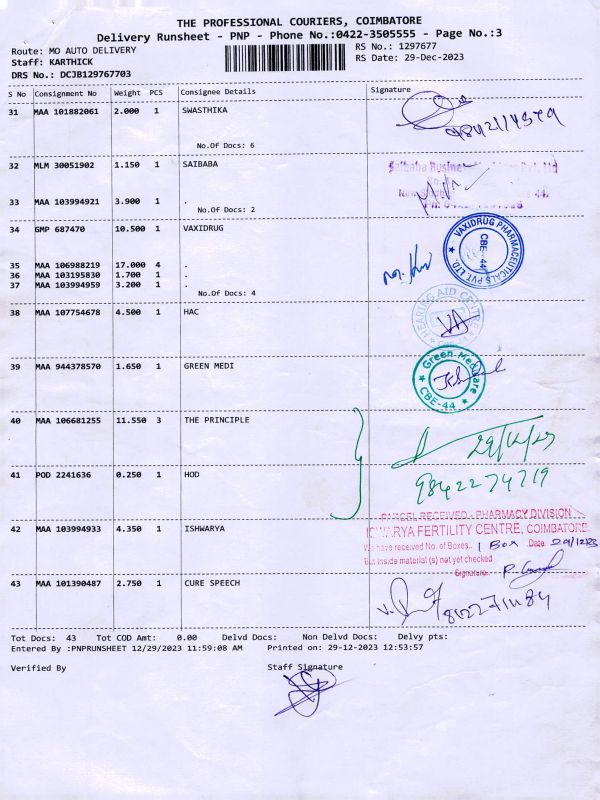 THE PROFESSIONAL COURIERS, COIMBATORE
Delivery Runsheet - PNP - Phone No.:0422-3505555 - Page No.:3
Route: MO AUTO DELIVERY
RS No.: 1297677
Staff: KARTHICK
RS Date: 29-Dec-2023
DRS No.: DCJB129767703
S No Consignment No Weight PCS Consignee Details Signature
31 MAA 101882061 2.000 1 SWASTHIKA
No.Of Docs: 6
32 MLM 30051902 1.150 1 SAIBABA
Saibaba Pvt. Ltd
33 MAA 103994921 3.900 1 .
No.Of Docs: 2
34 GMP 687470 10.500 1 VAXIDRUG
VAXIDRUG PHARMACEUTICALS PVT LTD. CBE-44
35 MAA 106988219 17.000 4 .
36 MAA 103195830 1.700 1 .
37 MAA 103994959 3.200 1 .
No.Of Docs: 4
38 MAA 107754678 4.500 1 HAC
HEARING AID CENTRE
39 MAA 944378570 1.650 1 GREEN MEDI
Green Medicare CBE-44
40 MAA 106681255 11.550 3 THE PRINCIPLE
29/12/23
9842274719
41 POD 2241636 0.250 1 HOD
PARCEL RECEIVED - PHARMACY DIVISION
42 MAA 103994933 4.350 1 ISHWARYA
ISWARYA FERTILITY CENTRE, COIMBATORE
We have received No. of Boxes.. 1 Box Date 29/12/23
But inside material (s) not yet checked
Signature
43 MAA 101390487 2.750 1 CURE SPEECH
Tot Docs: 43 Tot COD Amt: 0.00 Delvd Docs: Non Delvd Docs: Delvy pts:
Entered By :PNPRUNSHEET 12/29/2023 11:59:08 AM Printed on: 29-12-2023 12:53:57
Verified By Staff Signature